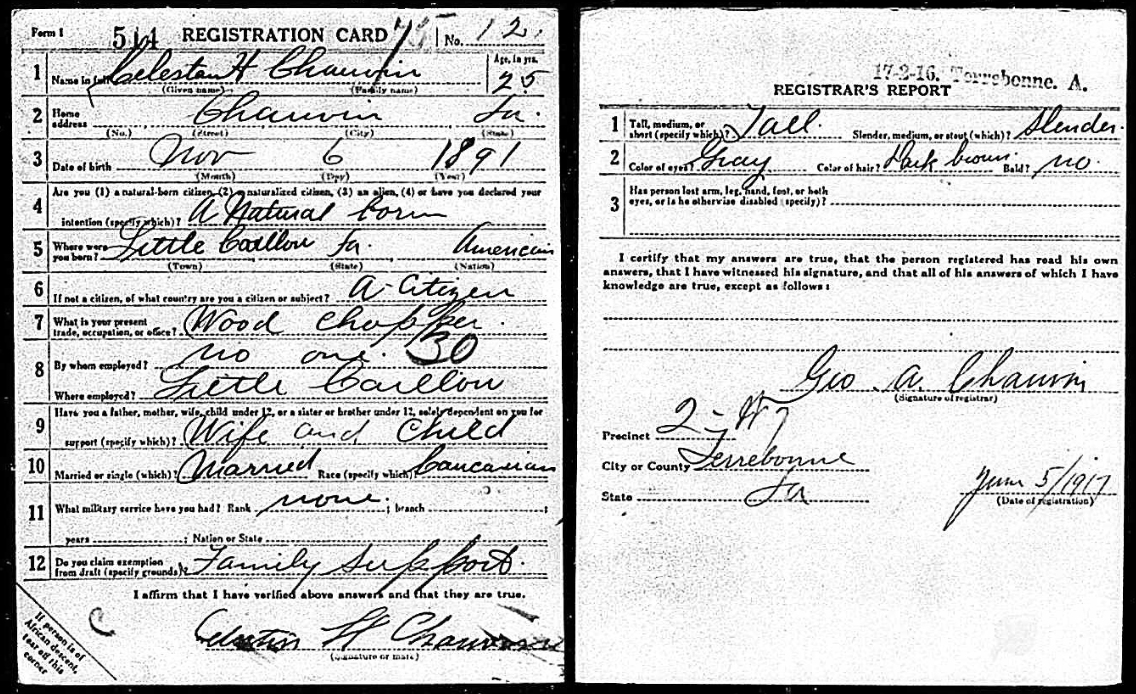 Form 1 514 REGISTRATION CARD No. 12.
1 Name in full Celestan H Chauvin Age, in yrs. 25
(Given name) (Family name)
2 Home address Chauvin La.
(No.) (Street) (City) (State)
3 Date of birth Nov 6 1891
(Month) (Day) (Year)
4 Are you (1) a natural-born citizen, (2) a naturalized citizen, (3) an alien, (4) or have you declared your
intention (specify which)? A Natural born
5 Where were you born? Little Caillou La. American
(Town) (State) (Nation)
6 If not a citizen, of what country are you a citizen or subject? A Citizen
7 What is your present trade, occupation, or office? Wood chopper.
8 By whom employed? no one. 30
Where employed? Little Caillou
9 Have you a father, mother, wife, child under 12, or a sister or brother under 12, solely dependent on you for
support (specify which)? Wife and Child
10 Married or single (which)? Married Race (specify which)? Caucasian
11 What military service have you had? Rank none. ; branch ;
years ; Nation or State
12 Do you claim exemption from draft (specify grounds)? Family support.
I affirm that I have verified above answers and that they are true.
Celestin H Chauvin
(Signature or mark)
If person is of
African descent,
tear off this
corner
17-2-16. Terrebonne. A.
REGISTRAR'S REPORT
1 Tall, medium, or short (specify which)? Tall. Slender, medium, or stout (which)? Slender.
2 Color of eyes? Gray Color of hair? Dark brown. Bald? no.
3 Has person lost arm, leg, hand, foot, or both
eyes, or is he otherwise disabled (specify)?
I certify that my answers are true, that the person registered has read his own
answers, that I have witnessed his signature, and that all of his answers of which I have
knowledge are true, except as follows:
Geo. A. Chauvin
(Signature of registrar)
Precinct 2-W 7
City or County Terrebonne
State La June 5/1917
(Date of registration)